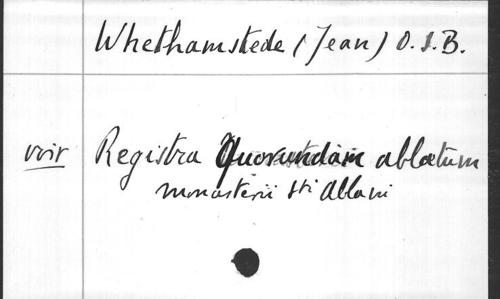 Whethamstede (Jean) O.S.B.
voir Registra Quorundam ablatum
monasterii sti Albani